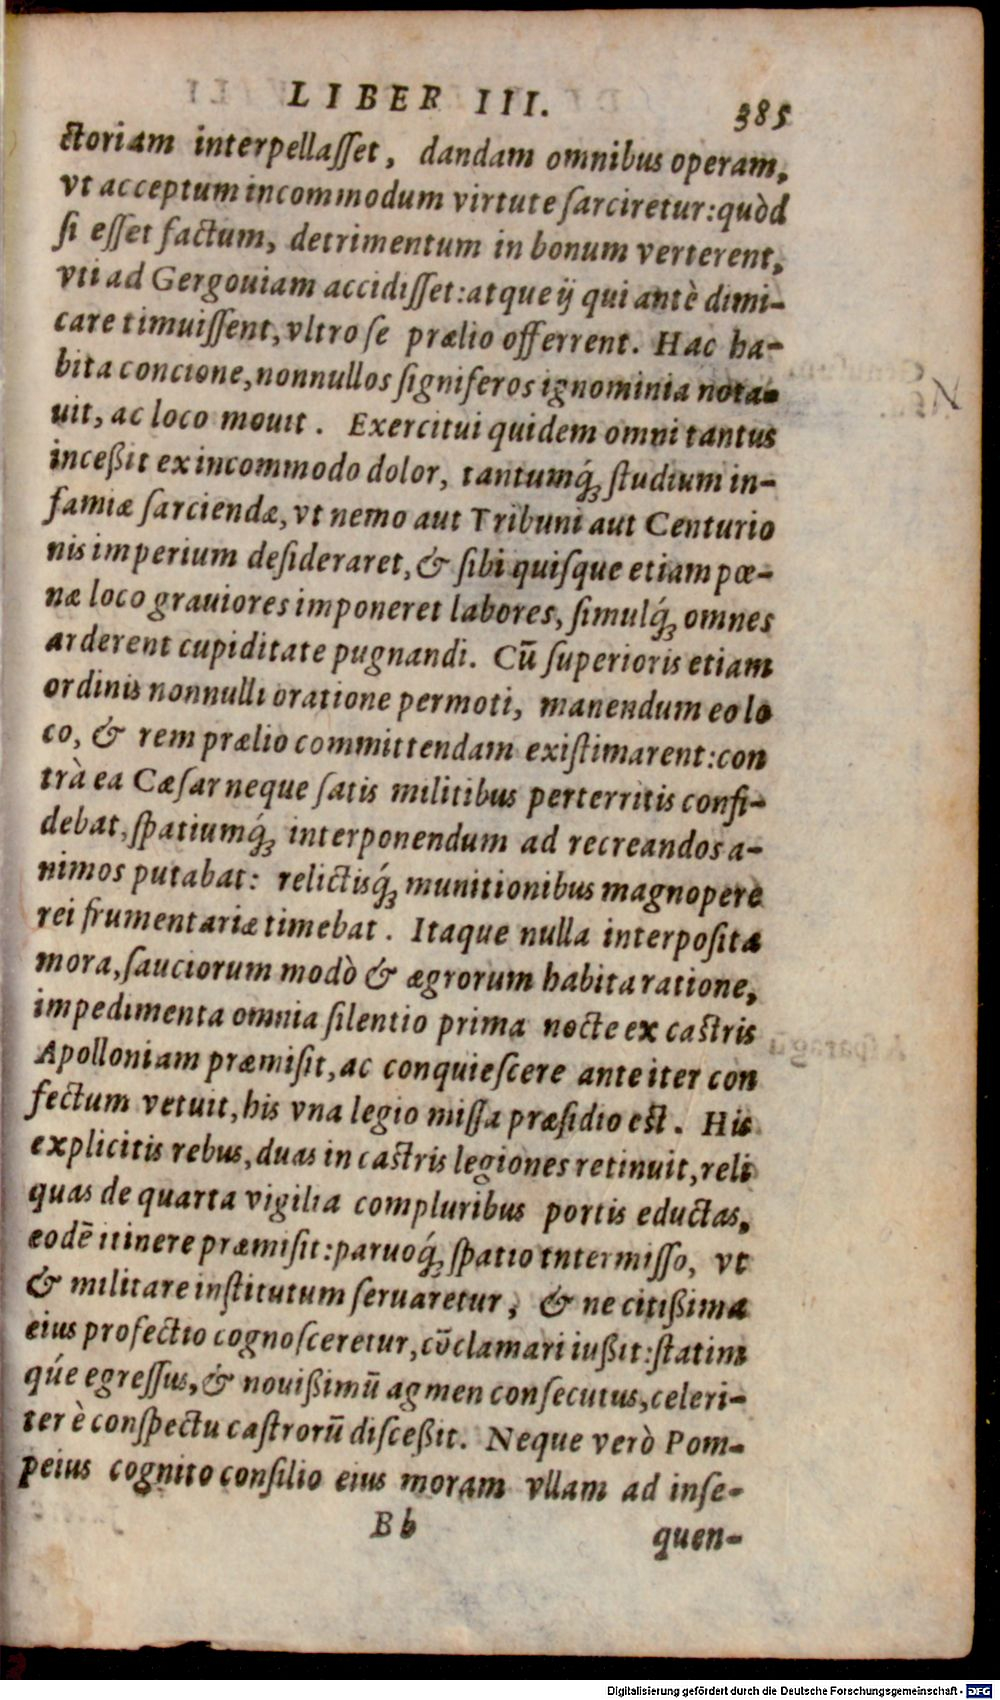 LIBER III. 385
ctoriam interpellasset, dandam omnibus operam,
vt acceptum incommodum virtute sarciretur: quòd
si esset factum, detrimentum in bonum verterent,
vti ad Gergouiam accidisset: atque ij qui antè dimi-
care timuissent, vltro se prælio offerrent. Hac ha-
bita concione, nonnullos signiferos ignominia nota-
uit, ac loco mouit. Exercitui quidem omni tantus
inceßit ex incommodo dolor, tantumq́; studium in-
famiæ sarciendæ, vt nemo aut Tribuni aut Centurio
nis imperium desideraret, & sibi quisque etiam pœ-
næ loco grauiores imponeret labores, simulq́; omnes
arderent cupiditate pugnandi. Cū superioris etiam
ordinis nonnulli oratione permoti, manendum eo lo
co, & rem prælio committendam existimarent: con
trà ea Cæsar neque satis militibus perterritis confi-
debat, spatiumq́; interponendum ad recreandos a-
nimos putabat: relictisq́; munitionibus magnopere
rei frumentariæ timebat. Itaque nulla interposita
mora, sauciorum modò & ægrorum habita ratione,
impedimenta omnia silentio prima nocte ex castris
Apolloniam præmisit, ac conquiescere ante iter con
fectum vetuit, his vna legio missa præsidio est. His
explicitis rebus, duas in castris legiones retinuit, reli
quas de quarta vigilia compluribus portis eductas,
eodē itinere præmisit: paruoq́; spatio intermisso, vt
& militare institutum seruaretur, & ne citißima
eius profectio cognosceretur, cōclamari iußit: statim
qúe egressus, & nouißimū agmen consecutus, celeri-
ter è conspectu castrorū disceßit. Neque verò Pom-
peius cognito consilio eius moram vllam ad inse-
Bb quen-
Digitalisierung gefördert durch die Deutsche Forschungsgemeinschaft - DFG